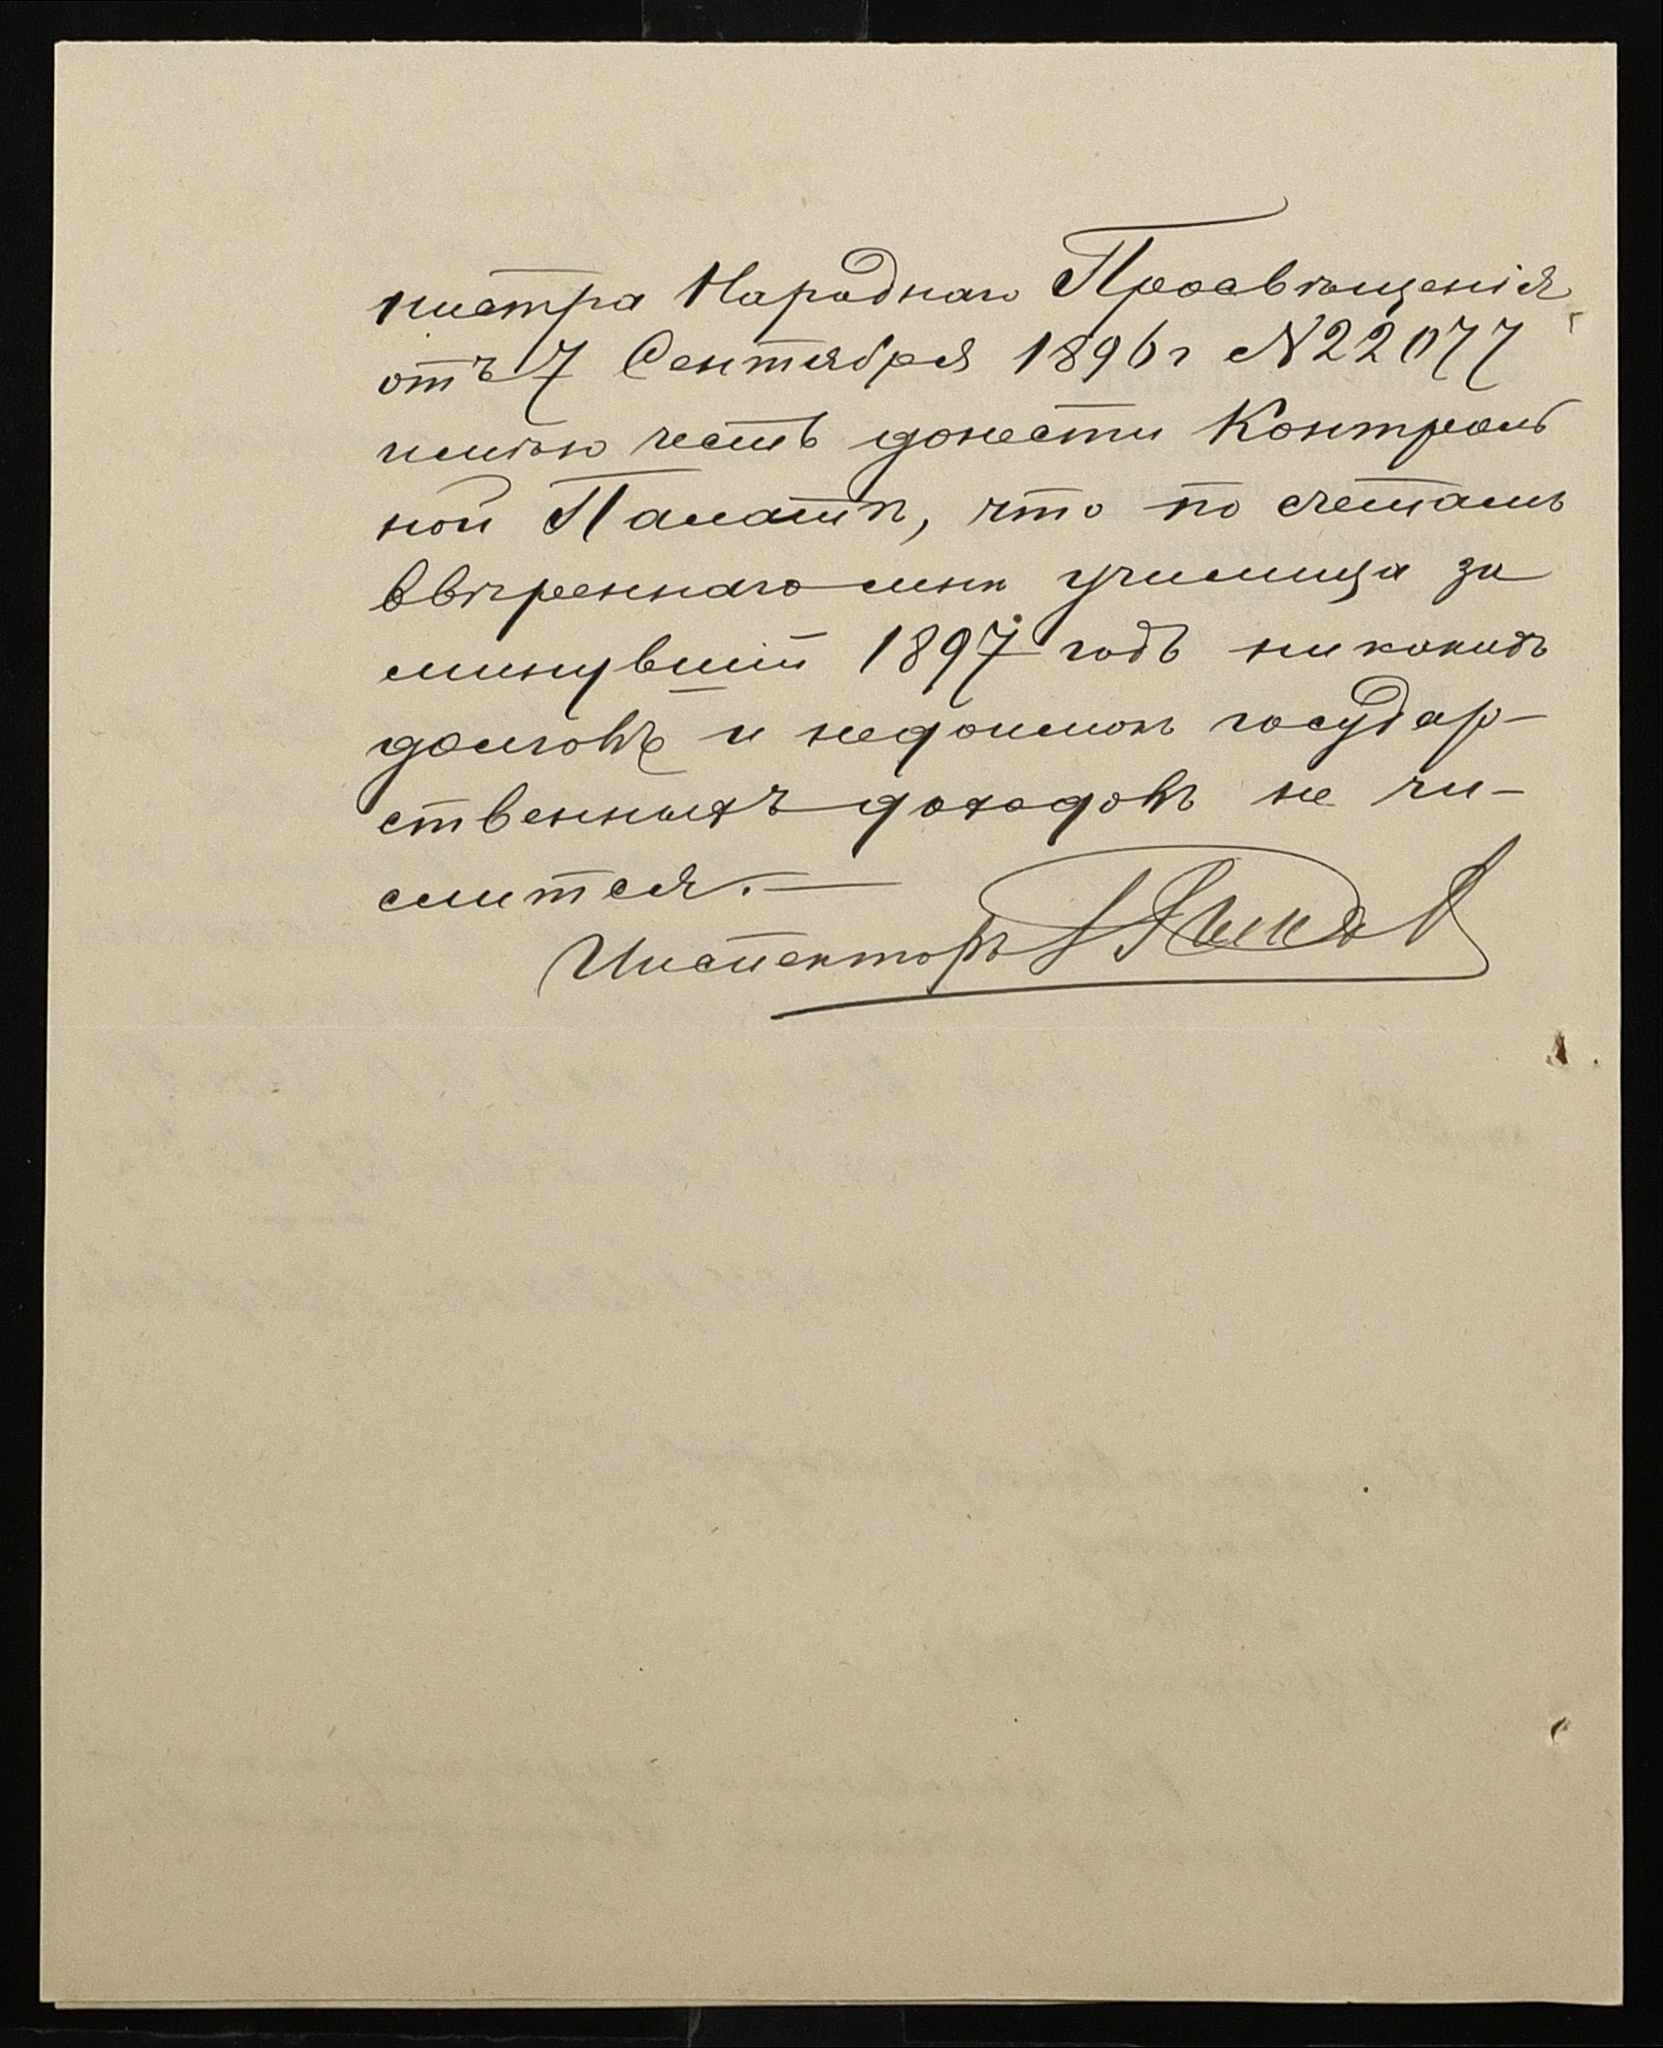 нистра Народнаго Просвѣщенія
отъ 7 Сентября 1896 г № 22077
имѣю честь донести Контроль
ной Палатѣ, что по счетамъ
ввѣреннаго мнѣ училища за
минувшій 1897 годъ никакихъ
долговъ и недоимокъ государ-
ственныхъ доходовъ не чи-
слится.—
Инспекторъ